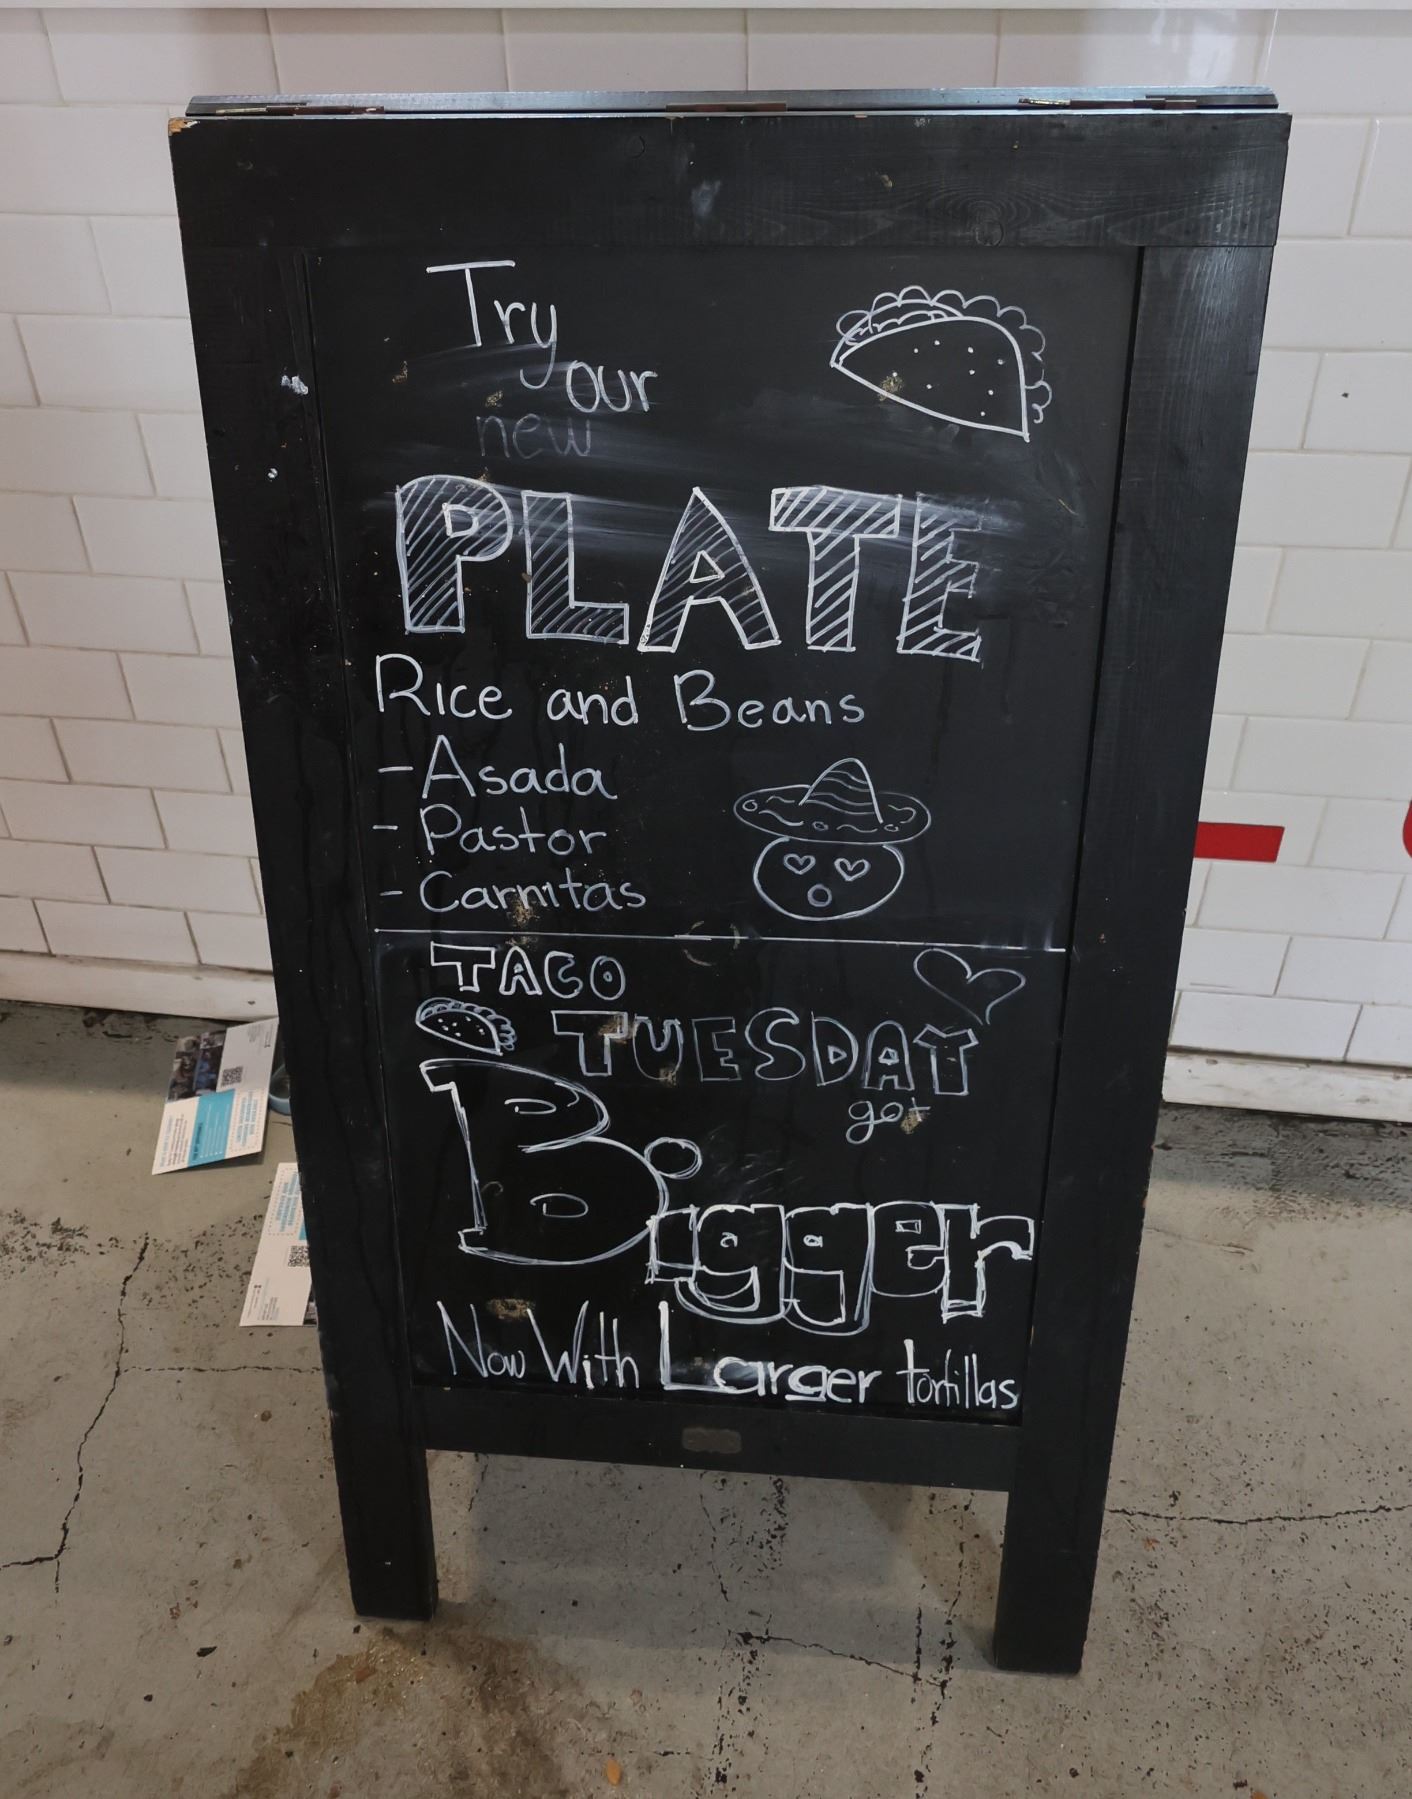 Try
our
new
PLATE
Rice and Beans
- Asada
- Pastor
- Carnitas
TACO
TUESDAY
got
Bigger
Now With Larger tortillas